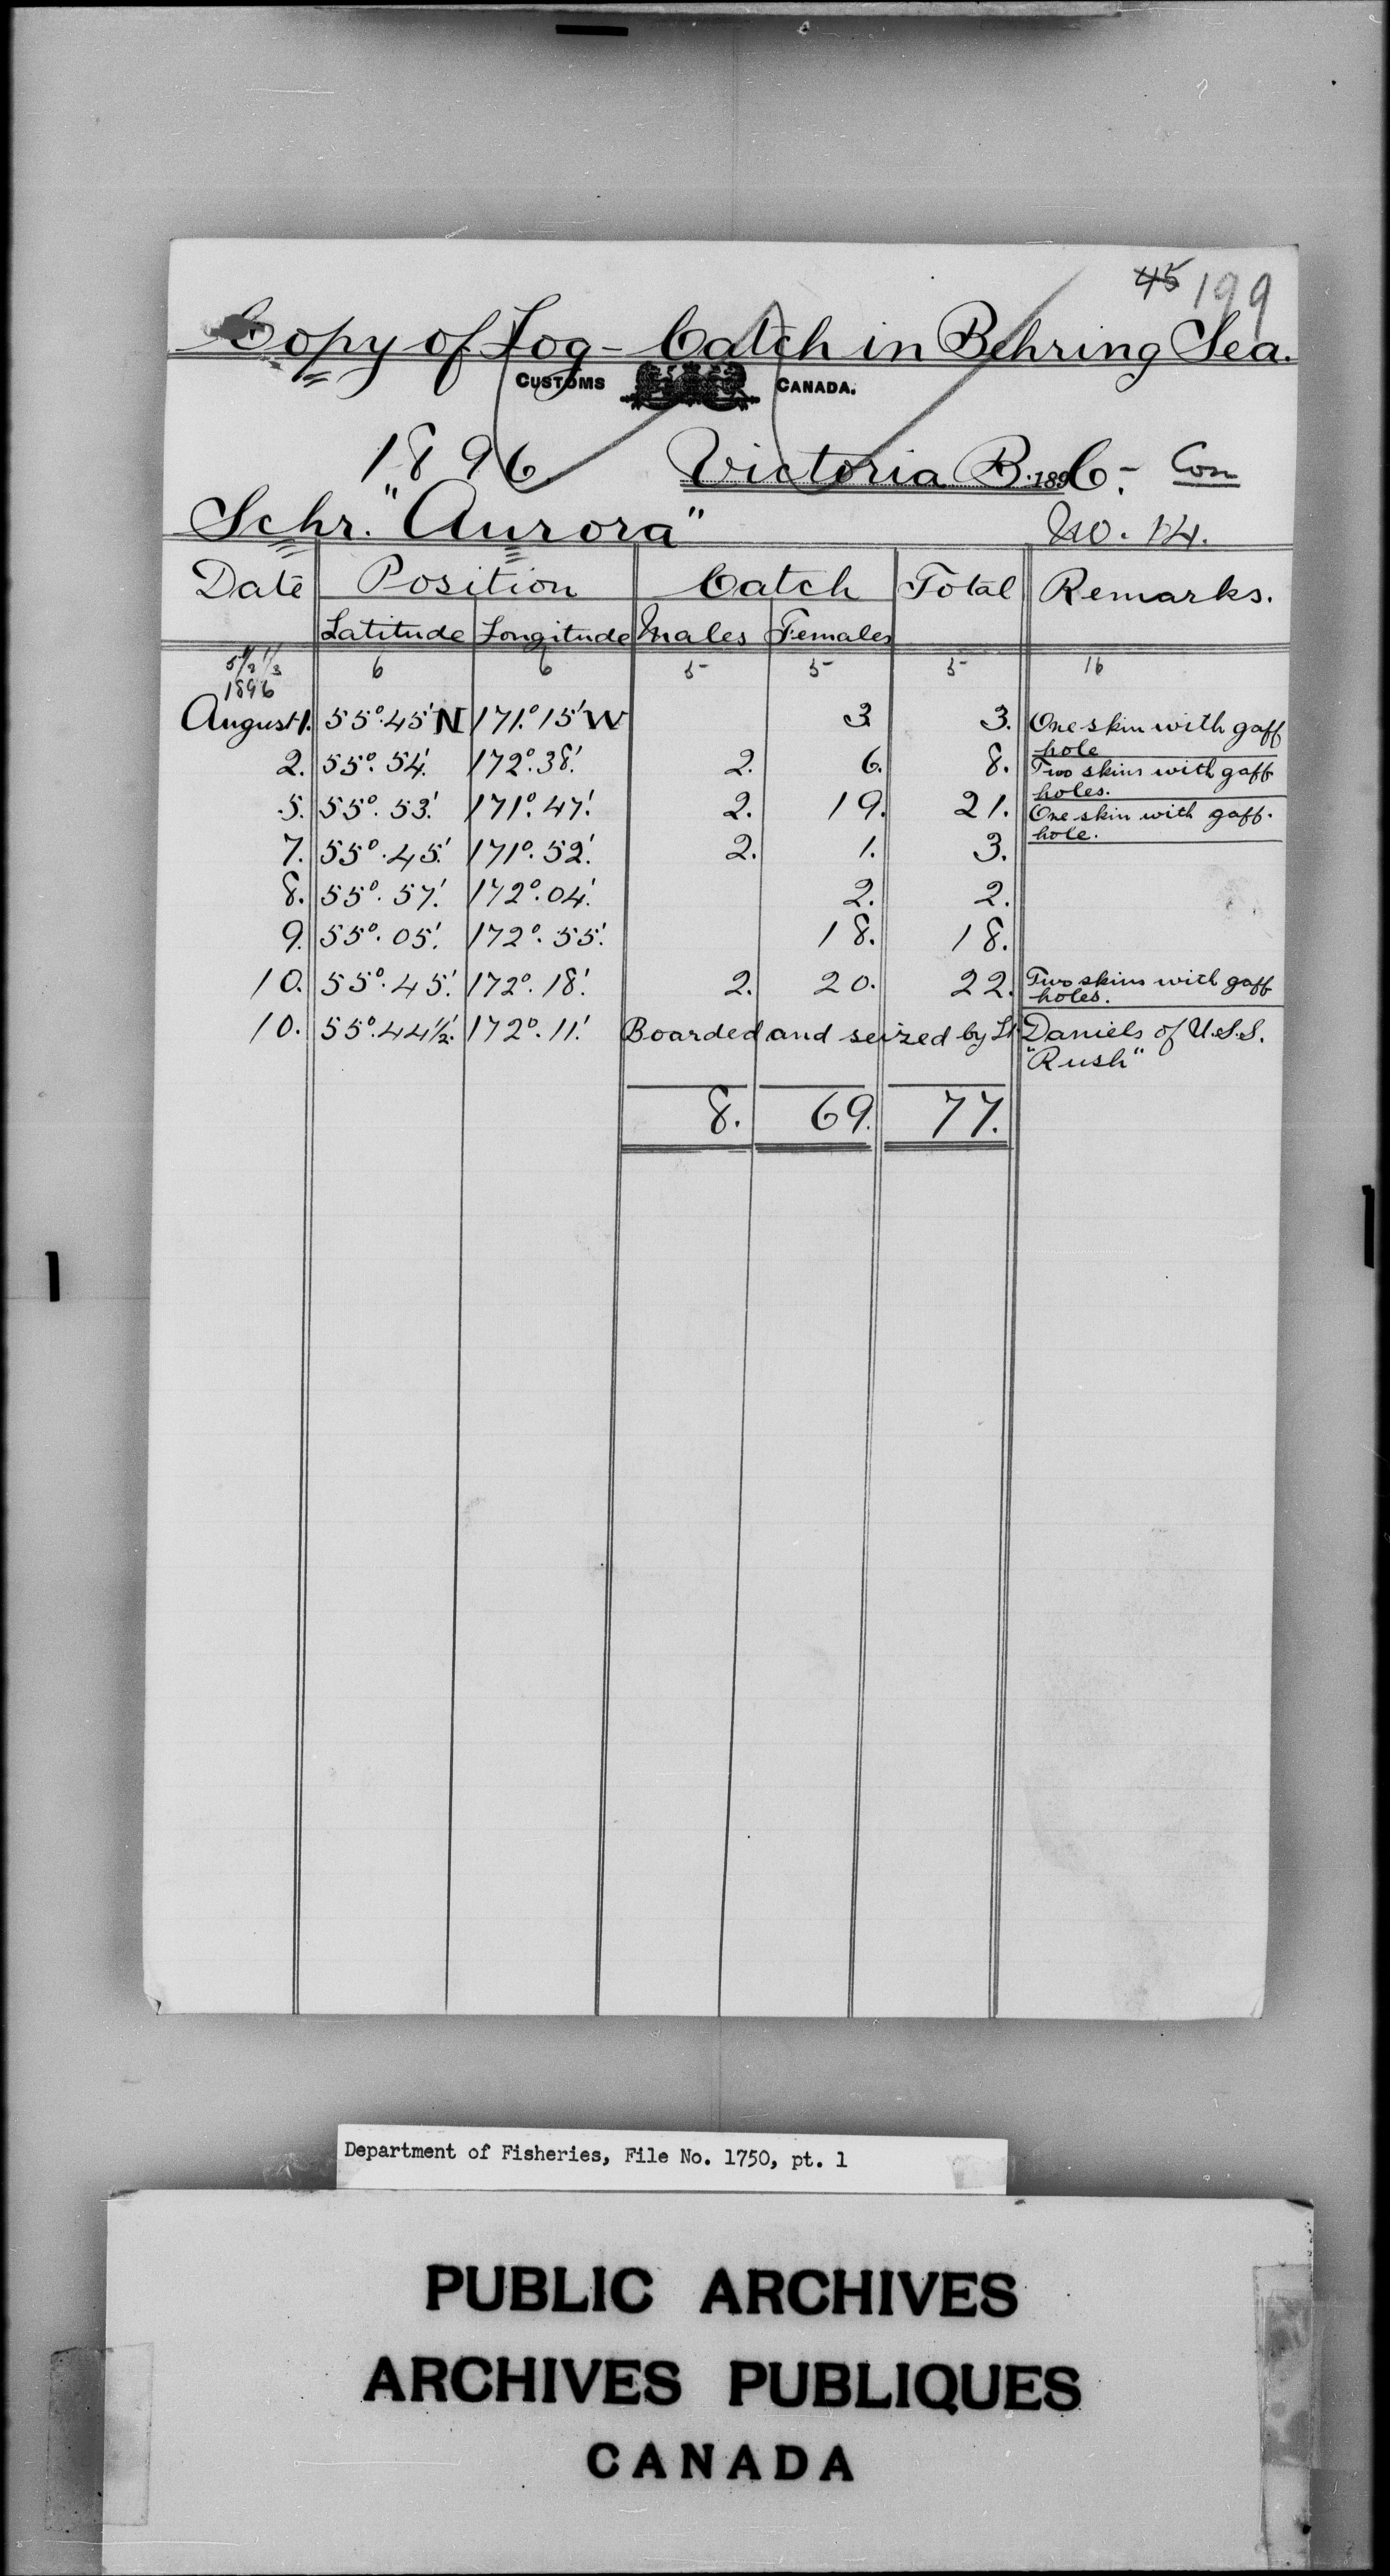 45 199
Copy of Log - Catch in Behring Sea.
CUSTOMS CANADA.
1896 Victoria B. 189 C. - Con
Schr. "Aurora" No. 14.
Date Position Catch Total Remarks.
Latitude Longitude Males Females
6 6 5 5 5 16
1896
August 1. 55°.45'N 171°.15'W 3 3. One skin with gaff
hole
2. 55°.54'. 172°.38'. 2. 6. 8. Two skins with gaff
holes.
5. 55°.53'. 171°.47'. 2. 19. 21. One skin with gaff.
hole.
7. 55°.45'. 171°.52'. 2. 1. 3.
8. 55°.57'. 172°.04'. 2. 2.
9. 55°.05'. 172°.55'. 18. 18.
10. 55°.45'. 172°.18'. 2. 20. 22. Two skins with gaff
holes.
10. 55°.44½'. 172°.11'. Boarded and seized by Lt Daniels of U.S.S.
"Rush"
8. 69. 77.
Department of Fisheries, File No. 1750, pt. 1
PUBLIC ARCHIVES
ARCHIVES PUBLIQUES
CANADA